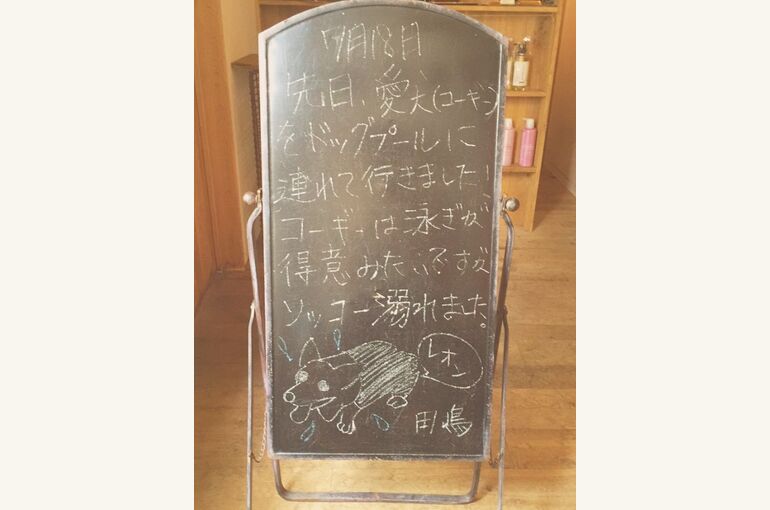 7月18日
先日、愛犬(コーギー)
をドッグプールに
連れて行きました！
コーギーは泳ぎが
得意みたいですが
ソッコー溺れました。
レオン
田嶋